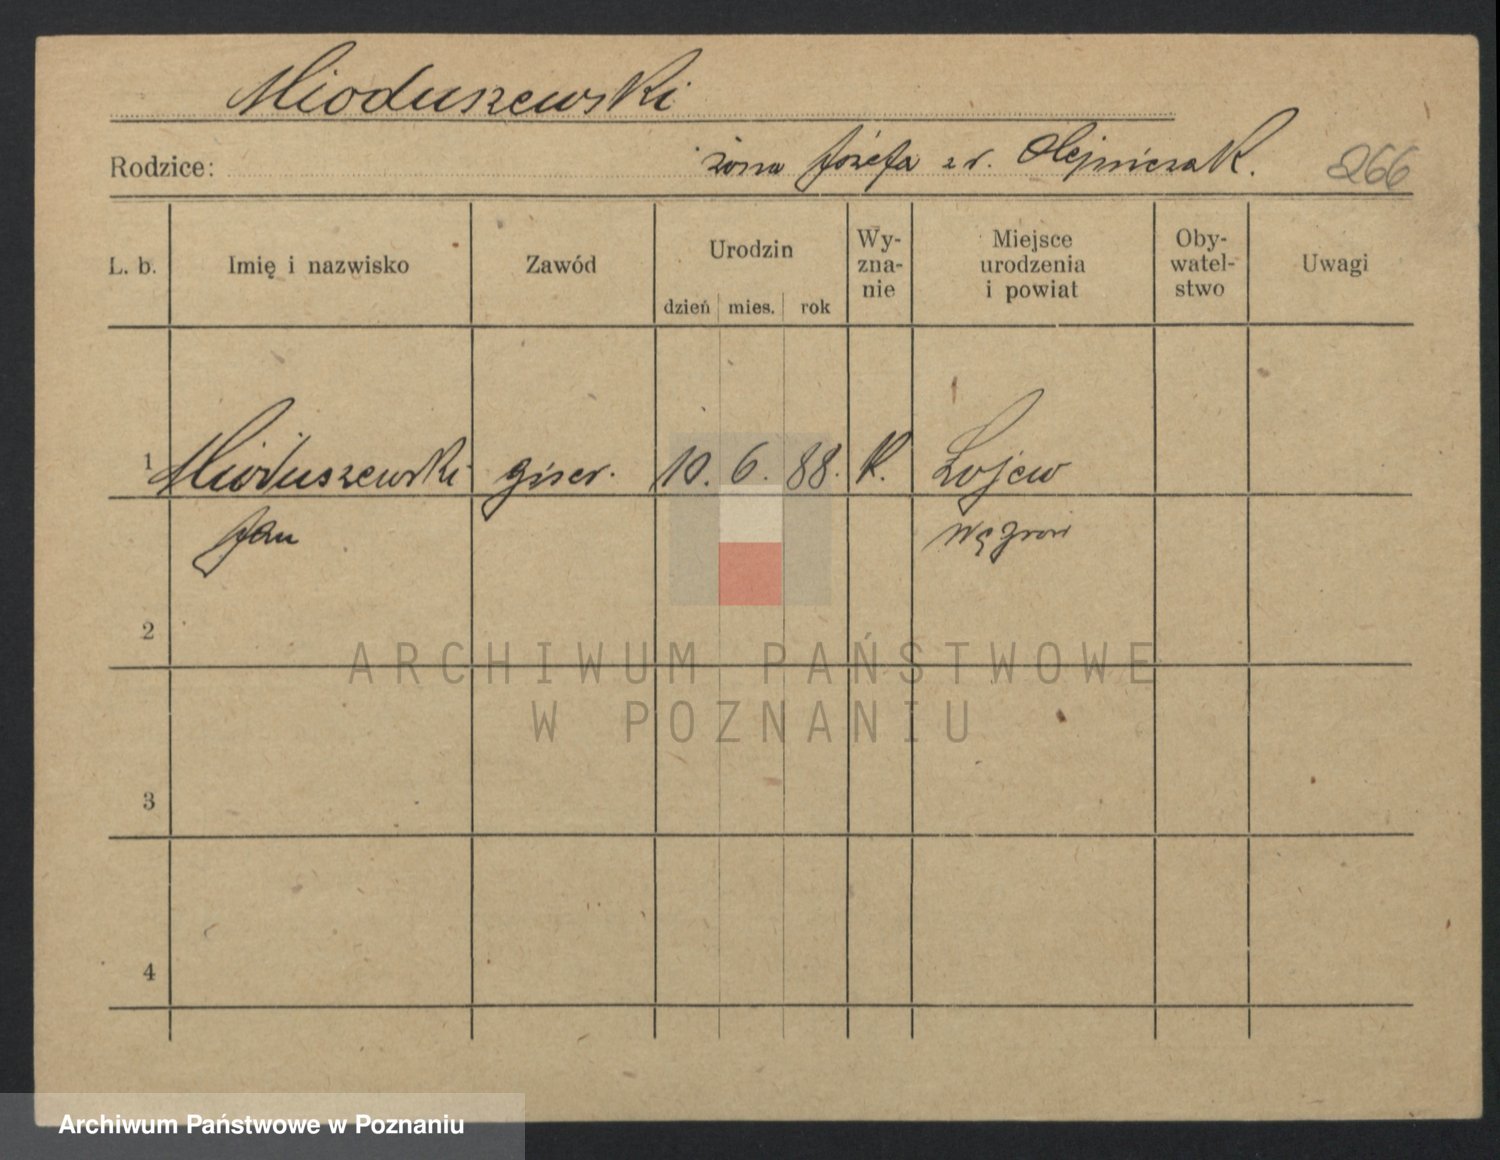 Mioduszewski
Rodzice: żona Józefa z d. Olejniczak. 266
L. b. Imię i nazwisko Zawód Urodzin dzień mies. rok Wy-zna-nie Miejsce urodzenia i powiat Oby-watel-stwo Uwagi
1 Mioduszewski giser. 10. 6. 88. K. Łojew
Jan Węgrów
2
3
4
ARCHIWUM PAŃSTWOWE
W POZNANIU
Archiwum Państwowe w Poznaniu